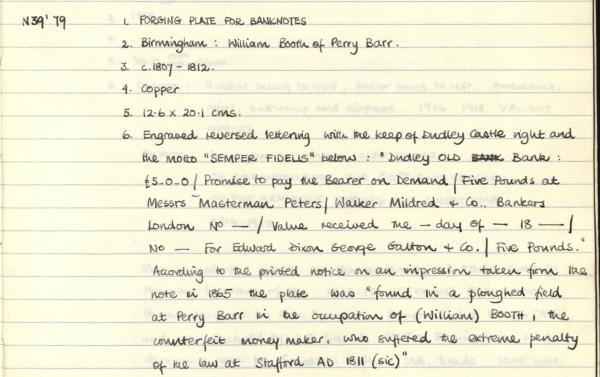 N39' 79 1. FORGING PLATE FOR BANKNOTES
2. Birmingham : William Booth of Perry Barr.
3. c.1807 - 1812.
4. Copper
5. 12.6 x 20.1 cms.
6. Engraved reversed lettering with the keep of Dudley Castle right and
the motto "SEMPER FIDELIS" below : "Dudley OLD BANK Bank :
£5-0-0 / Promise to pay the Bearer on Demand / Five Pounds at
Messrs Masterman Peters / Walker Mildred & Co. Bankers
London No — / Value received the — day of — 18 — /
No — For Edward Dixon George Galton & Co. / Five Pounds."
According to the printed notice on an impression taken from the
note in 1865 the plate was "found in a ploughed field
at Perry Barr in the occupation of (William) BOOTH, the
counterfeit money maker, who suffered the extreme penalty
of the law at Stafford AD 1811 (sic)"